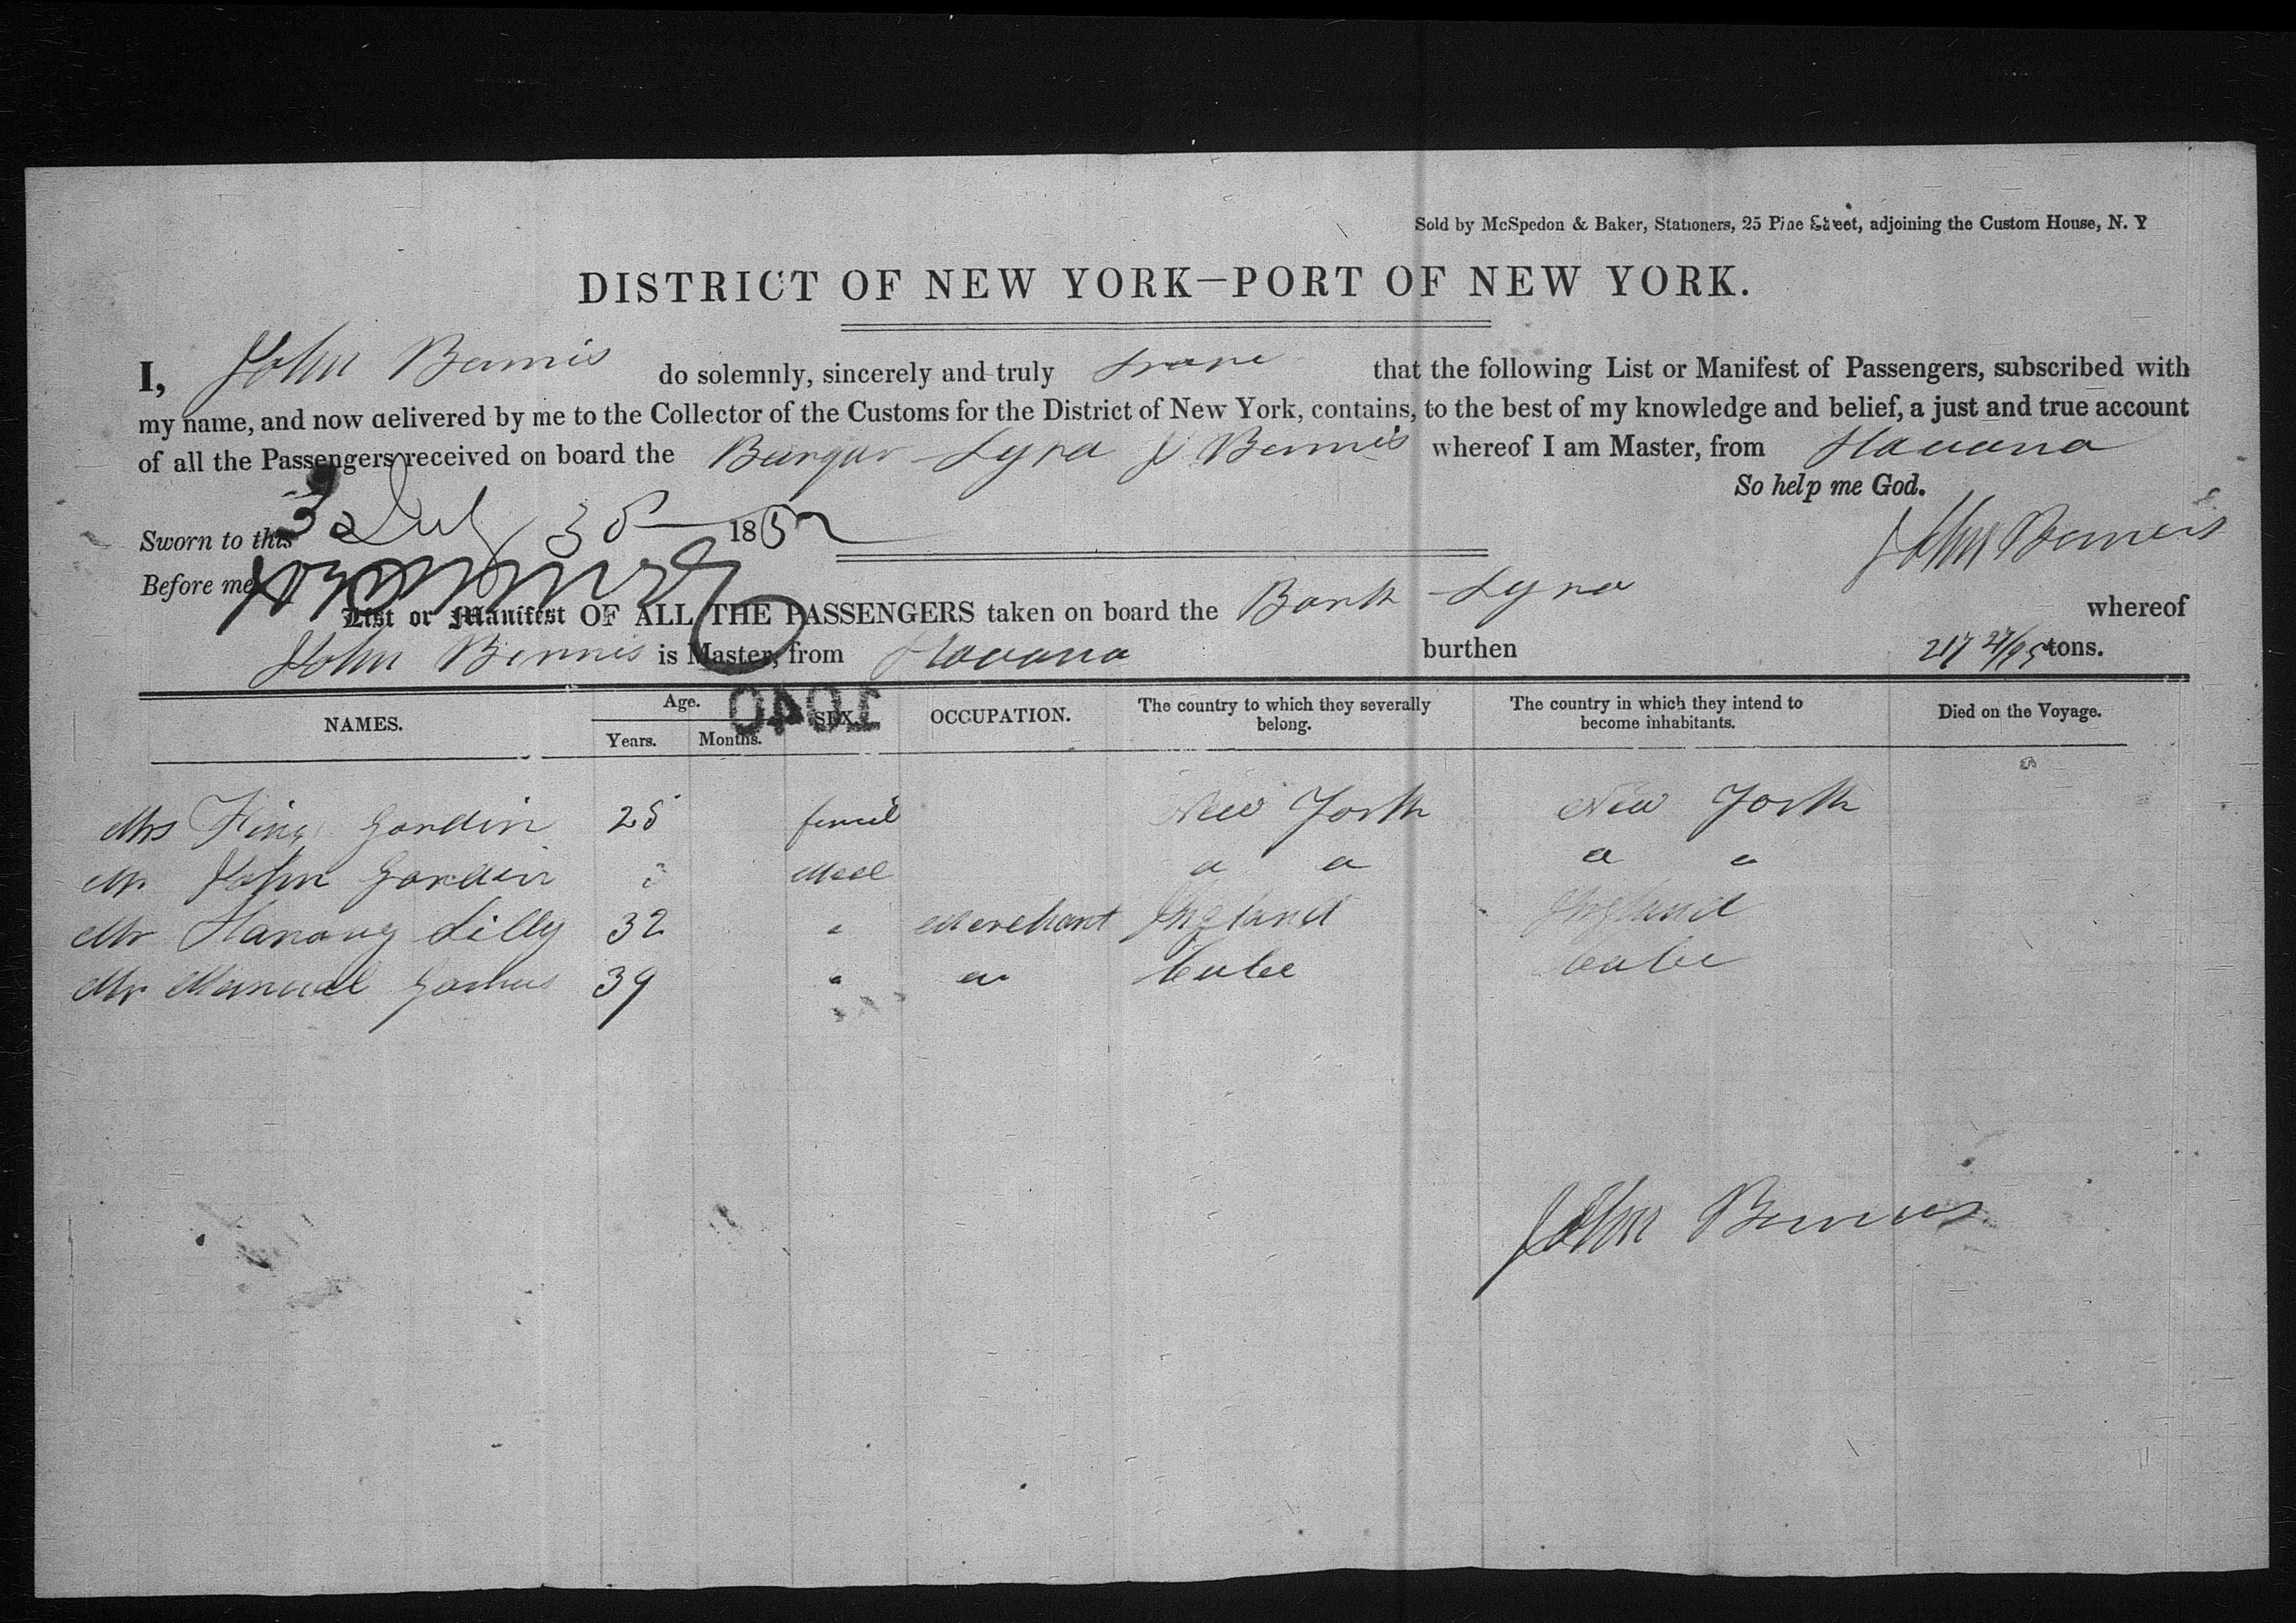 Sold by McSpedon & Baker, Stationers, 25 Pine Street, adjoining the Custom House, N. Y
DISTRICT OF NEW YORK—PORT OF NEW YORK.
I, John Bennis do solemnly, sincerely and truly swore that the following List or Manifest of Passengers, subscribed with
my name, and now delivered by me to the Collector of the Customs for the District of New York, contains, to the best of my knowledge and belief, a just and true account
of all the Passengers received on board the Lyra J Bennis whereof I am Master, from Havana
So help me God.
Sworn to this July 1852
John Bennis
Before me
List or Manifest OF ALL THE PASSENGERS taken on board the Bark Lyra whereof
John Bennis is Master, from Havana burthen 217 27/95 tons.
1040
NAMES. Age. Years. Months. SEX. OCCUPATION. The country to which they severally belong. The country in which they intend to become inhabitants. Died on the Voyage.
Mrs Gordin 25 femel New York New York
Mr John Gordin Mael " " " "
Mr Lilly 32 " Merchant England England
Mr Manual 39 " " Cube Cube
John Bennis